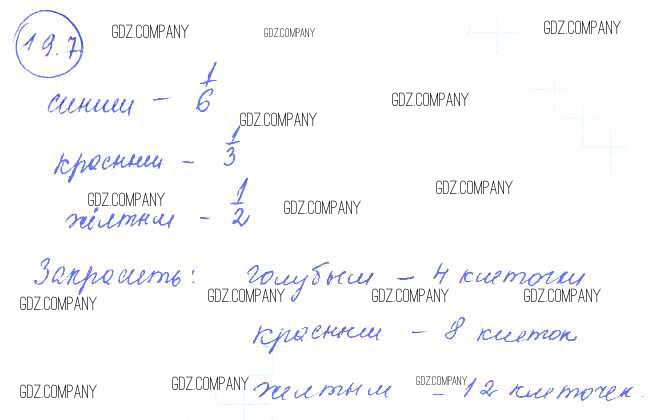 GDZ.COMPANY GDZ.COMPANY GDZ.COMPANY
19.7
синим - 1/6
GDZ.COMPANY
GDZ.COMPANY
красным - 1/3
GDZ.COMPANY
GDZ.COMPANY GDZ.COMPANY
жёлтым - 1/2
Закрасить: голубым - 4 клеточки
GDZ.COMPANY GDZ.COMPANY GDZ.COMPANY GDZ.COMPANY
красным - 8 клеток
GDZ.COMPANY GDZ.COMPANY GDZ.COMPANY
желтым - 12 клеточек.